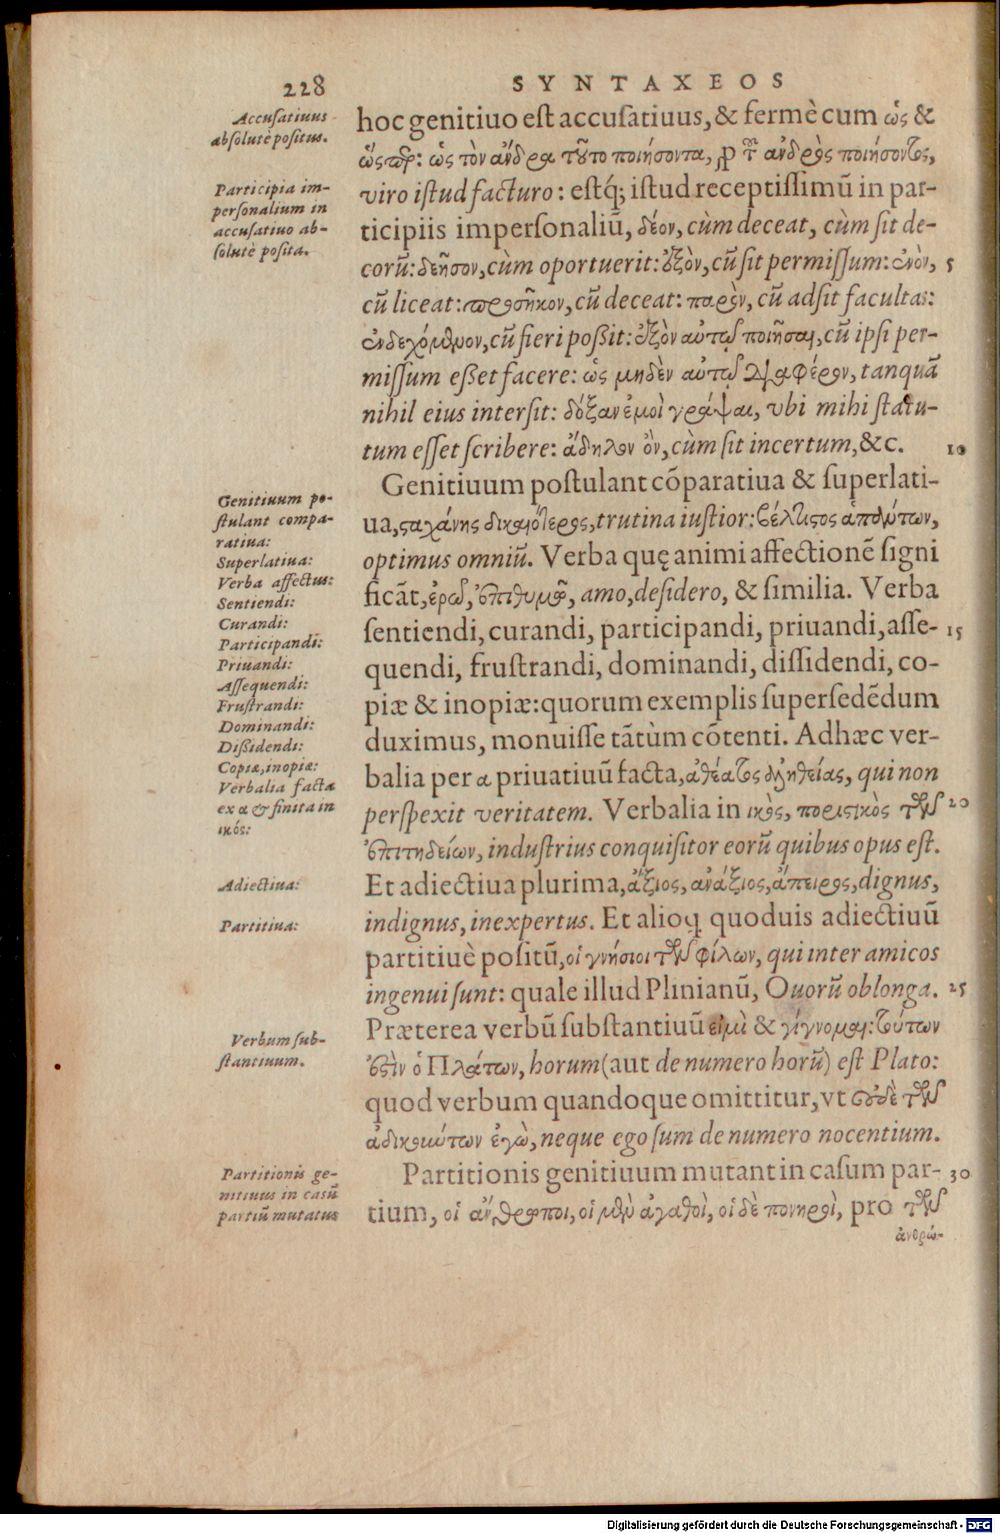 228
SYNTAXEOS
Accusatiuus
absolutè positus.
Participia im-
personalium in
accusatiuo ab-
solutè posita.
Genitiuum po-
stulant compa-
ratiua:
Superlatiua:
Verba affectus:
Sentiendi:
Curandi:
Participandi:
Priuandi:
Assequendi:
Frustrandi:
Dominandi:
Dißidendi:
Copiæ, inopiæ:
Verbalia facta
ex α & finita in
ικός:
Adiectiua:
Partitiua:
Verbum sub-
stantiuum.
Partitionis ge-
nitiuus in casũ
partiũ mutatus
hoc genitiuo est accusatiuus, & fermè cum ὡς &
ὥσπερ: ὡς τὸν ἄνδρα τοῦτο ποιήσοντα, pro τοῦ ἀνδρὸς ποιήσοντος,
viro istud facturo: estq́; istud receptissimũ in par-
ticipiis impersonaliũ, δέον, cùm deceat, cùm sit de-
corũ: δεῆσον, cùm oportuerit: ἐξὸν, cũ sit permissum: ἐνὸν, 5
cũ liceat: προσῆκον, cũ deceat: παρὸν, cũ adsit facultas:
ἐνδεχόμενον, cũ fieri poßit: ἐξὸν αὐτῷ ποιῆσαι, cũ ipsi per-
missum eßet facere: ὡς μηδὲν αὐτῷ διαφέρον, tanquã
nihil eius intersit: δόξαν ἐμοὶ γράψαι, vbi mihi statu-
tum esset scribere: ἄδηλον ὂν, cùm sit incertum, &c. 10
Genitiuum postulant cõparatiua & superlati-
ua, σταχάνης δικαιότερος, trutina iustior: βέλτιστος ἁπάντων,
optimus omniũ. Verba quę animi affectionẽ signi
ficãt, ἐρῶ, ἐπιθυμῶ, amo, desidero, & similia. Verba
sentiendi, curandi, participandi, priuandi, asse- 15
quendi, frustrandi, dominandi, dissidendi, co-
piæ & inopiæ: quorum exemplis supersedẽdum
duximus, monuisse tãtùm cõtenti. Adhæc ver-
balia per α priuatiuũ facta, ἀθέατος ἀληθείας, qui non
perspexit veritatem. Verbalia in ικὸς, ποριστικὸς τῶν 20
ἐπιτηδείων, industrius conquisitor eorũ quibus opus est.
Et adiectiua plurima, ἄξιος, ἀνάξιος, ἄπειρος, dignus,
indignus, inexpertus. Et alioq quoduis adiectiuũ
partitiuè positũ, οἱ γνήσιοι τῶν φίλων, qui inter amicos
ingenui sunt: quale illud Plinianũ, Ouorũ oblonga. 25
Præterea verbũ substantiuũ εἰμὶ & γίγνομαι: τούτων
ἐστὶν ὁ Πλάτων, horum (aut de numero horũ) est Plato:
quod verbum quandoque omittitur, vt οὐδὲ τῶν
ἀδικούντων ἐγὼ, neque ego sum de numero nocentium.
Partitionis genitiuum mutant in casum par- 30
tium, οἱ ἄνθρωποι, οἱ μὲν ἀγαθοὶ, οἱ δὲ πονηροὶ, pro τῶν
ἀνθρώ-
Digitalisierung gefördert durch die Deutsche Forschungsgemeinschaft - DFG